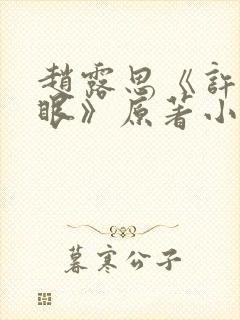 趙露思《許
眼》原著小
暮寒公子